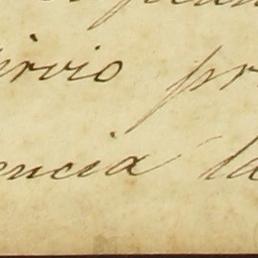 irvio pr
encia la